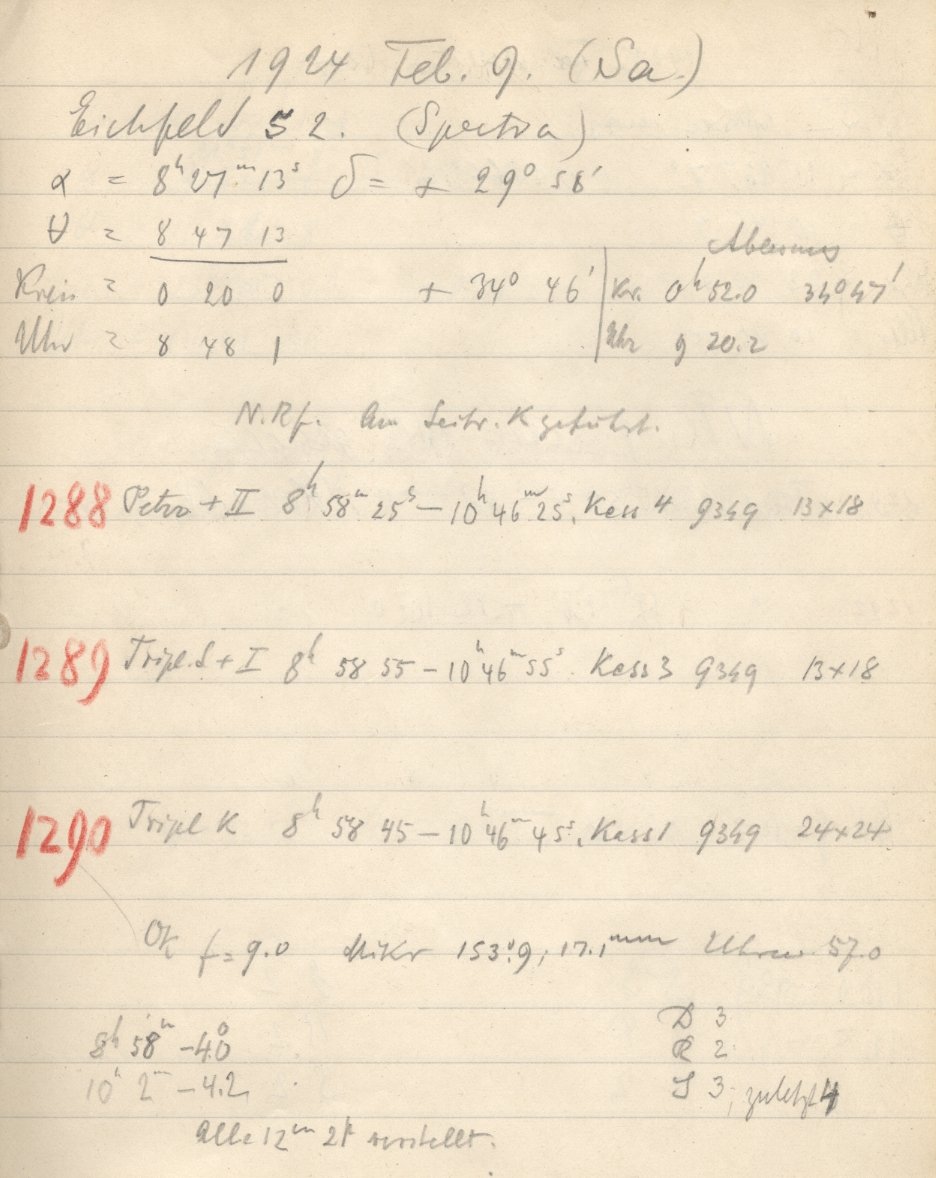 1924 Feb. 9. (Sa.)
Eichfeld 52. (Spectra)
α = 8h 27m 13s δ = + 29° 58'
θ = 8 47 13
Ablesung
Kreis = 0 20 0 + 34° 46' Kr. 0h 52.0 34° 47'
Uhr = 8 48 1 Uhr 9 20.2
N.Rf. Am Leitr. K geführt.
1288 Petzv + II 8h 58m 25s – 10h 46m 25s. Kass 4 9349 13x18
1289 Tripl. S + I 8h 58 55 – 10h 46m 55s. Kass 3 9349 13x18
1290 Tripl K 8h 58 45 – 10h 46m 45s. Kass 1 9349 24x24
Ok f = 9.0 Mikr 153°.9; 17.1mm Uhrw. 57.0
8h 58m –4.0 D 3
10h 2m –4.2 R 2
S 3; zuletzt 4
Alle 12m 2k verstellt.